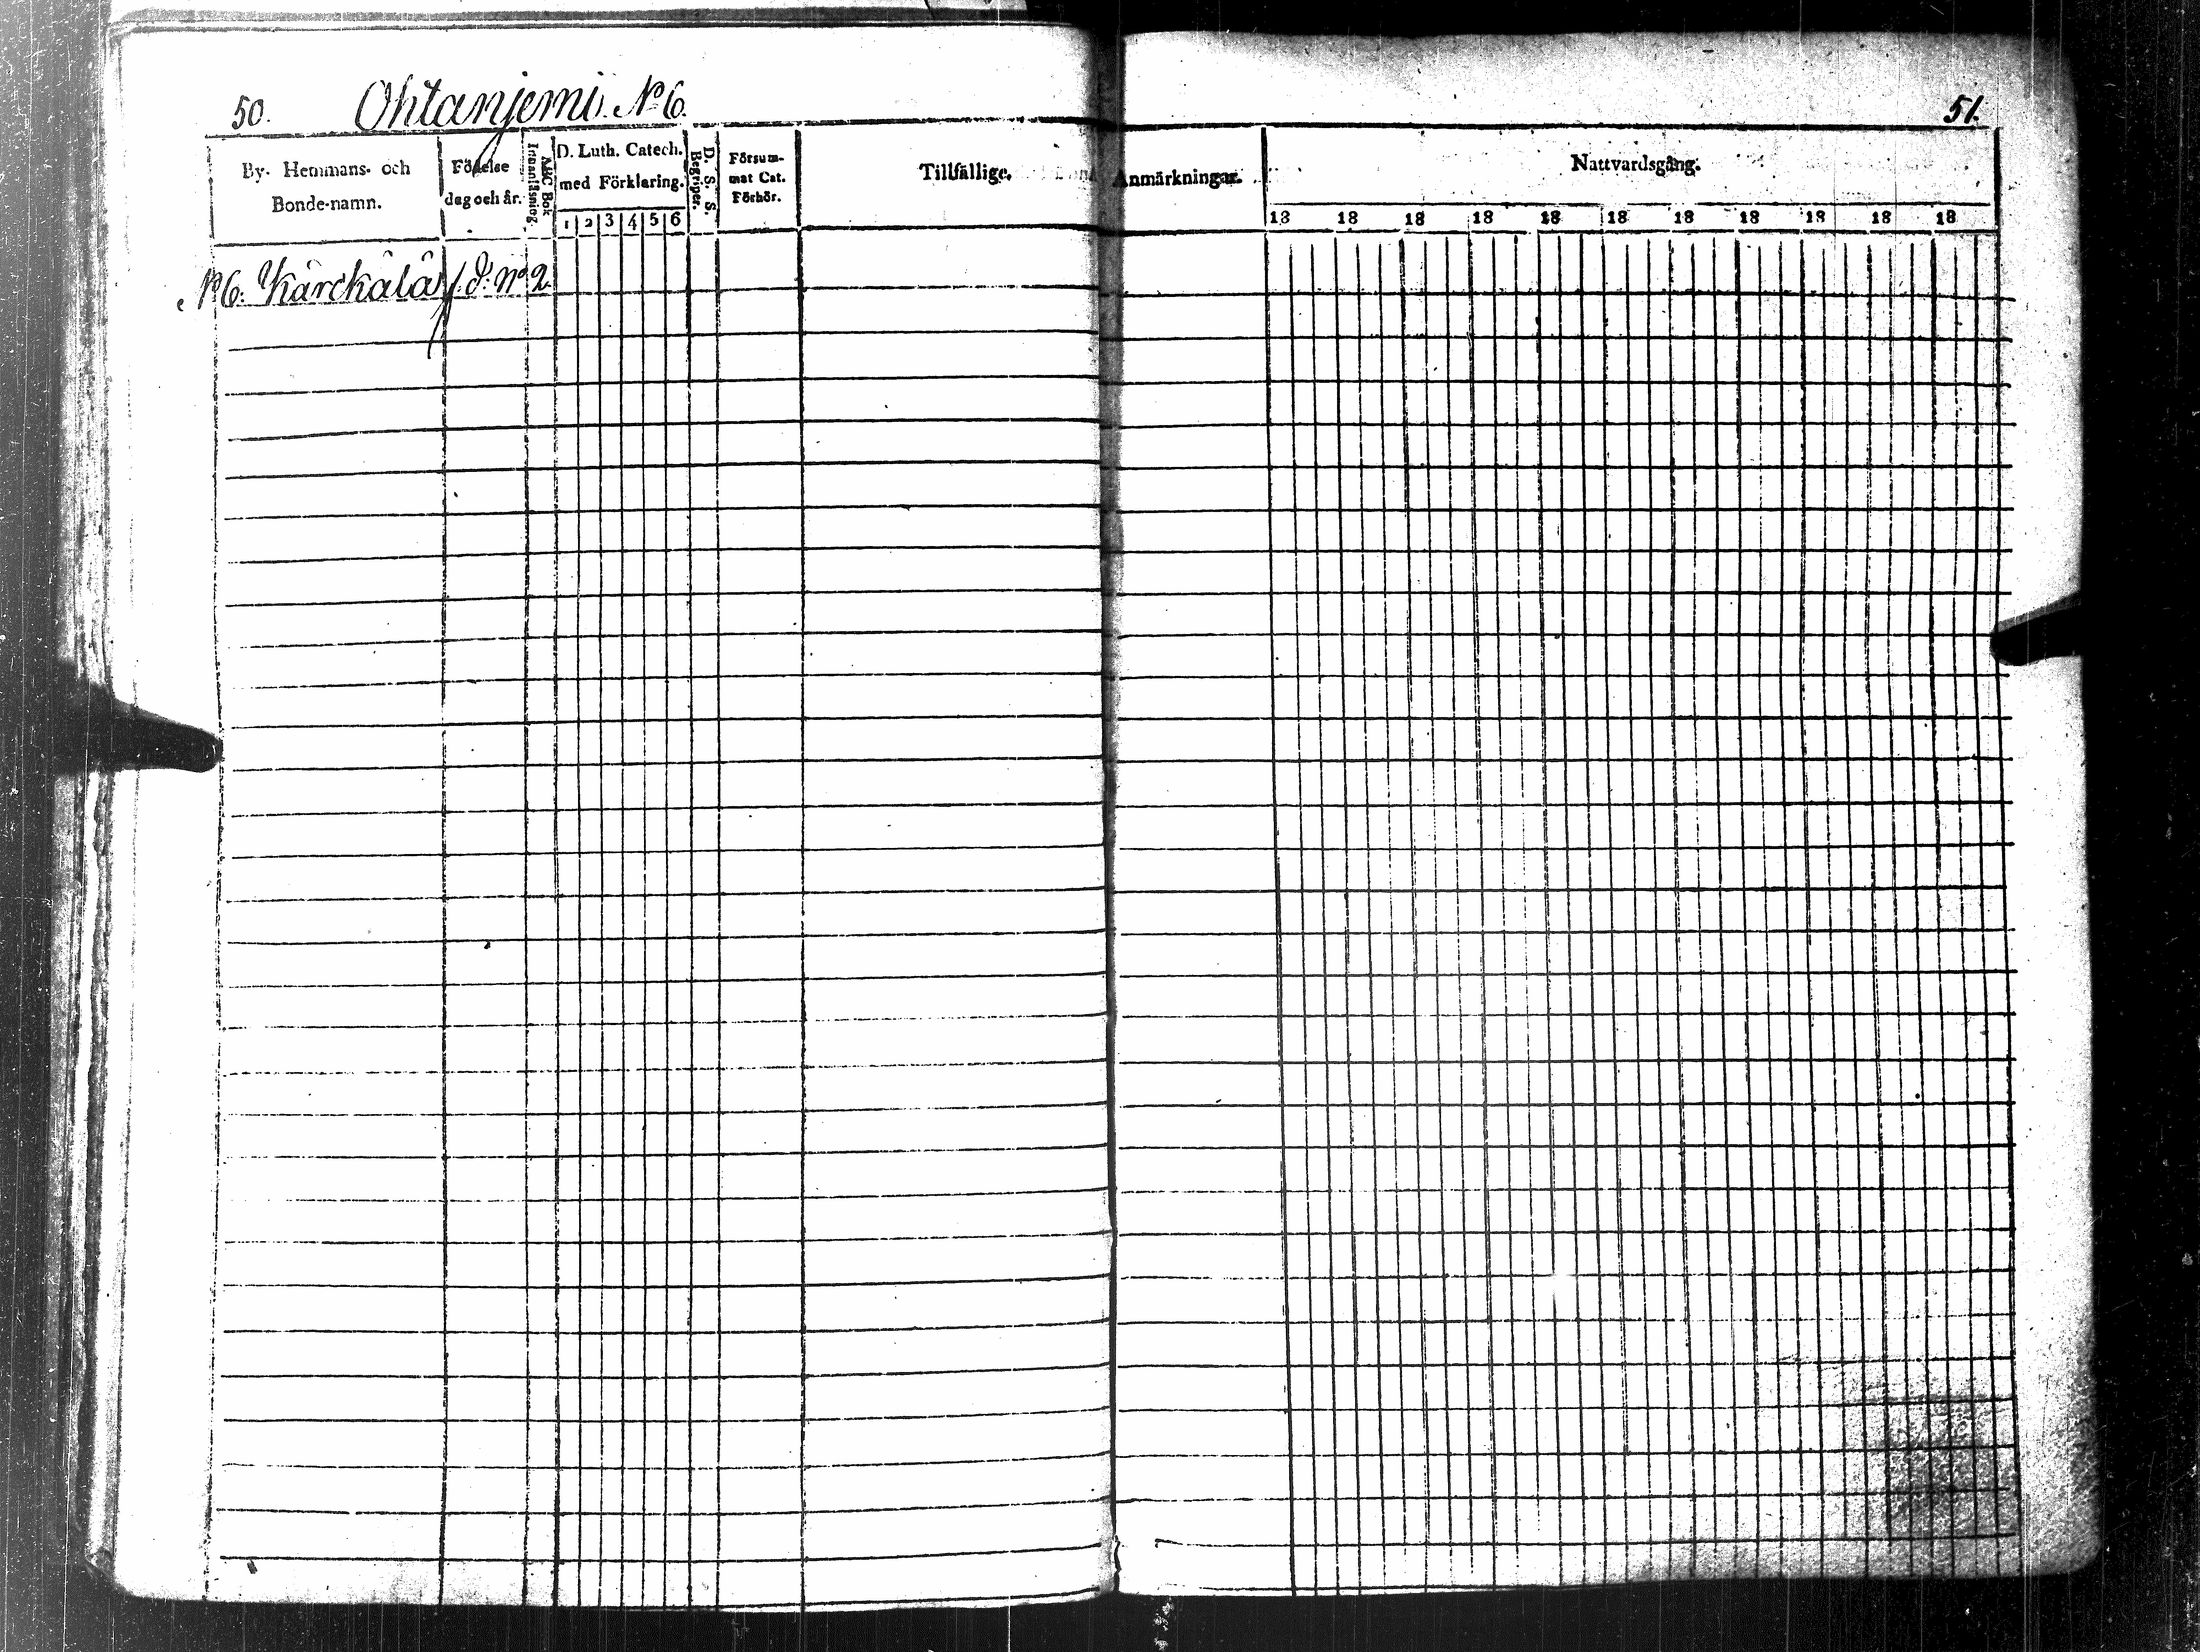 50. Ohtanjemi. No 6.
51.
By- Hemmans- och Bonde-namn.
Födelse dag och år.
ABC Bok Innanläsning.
D. Luth. Catech. med Förklaring.
1 2 3 4 5 6
D. S. S. Begriper.
Försummat Cat. Förhör.
Tillfällige Anmärkningar.
Nattvardsgång.
18 18 18 18 18 18 18 18 18 18 18
No 6. Kärckälä f. d. No 2